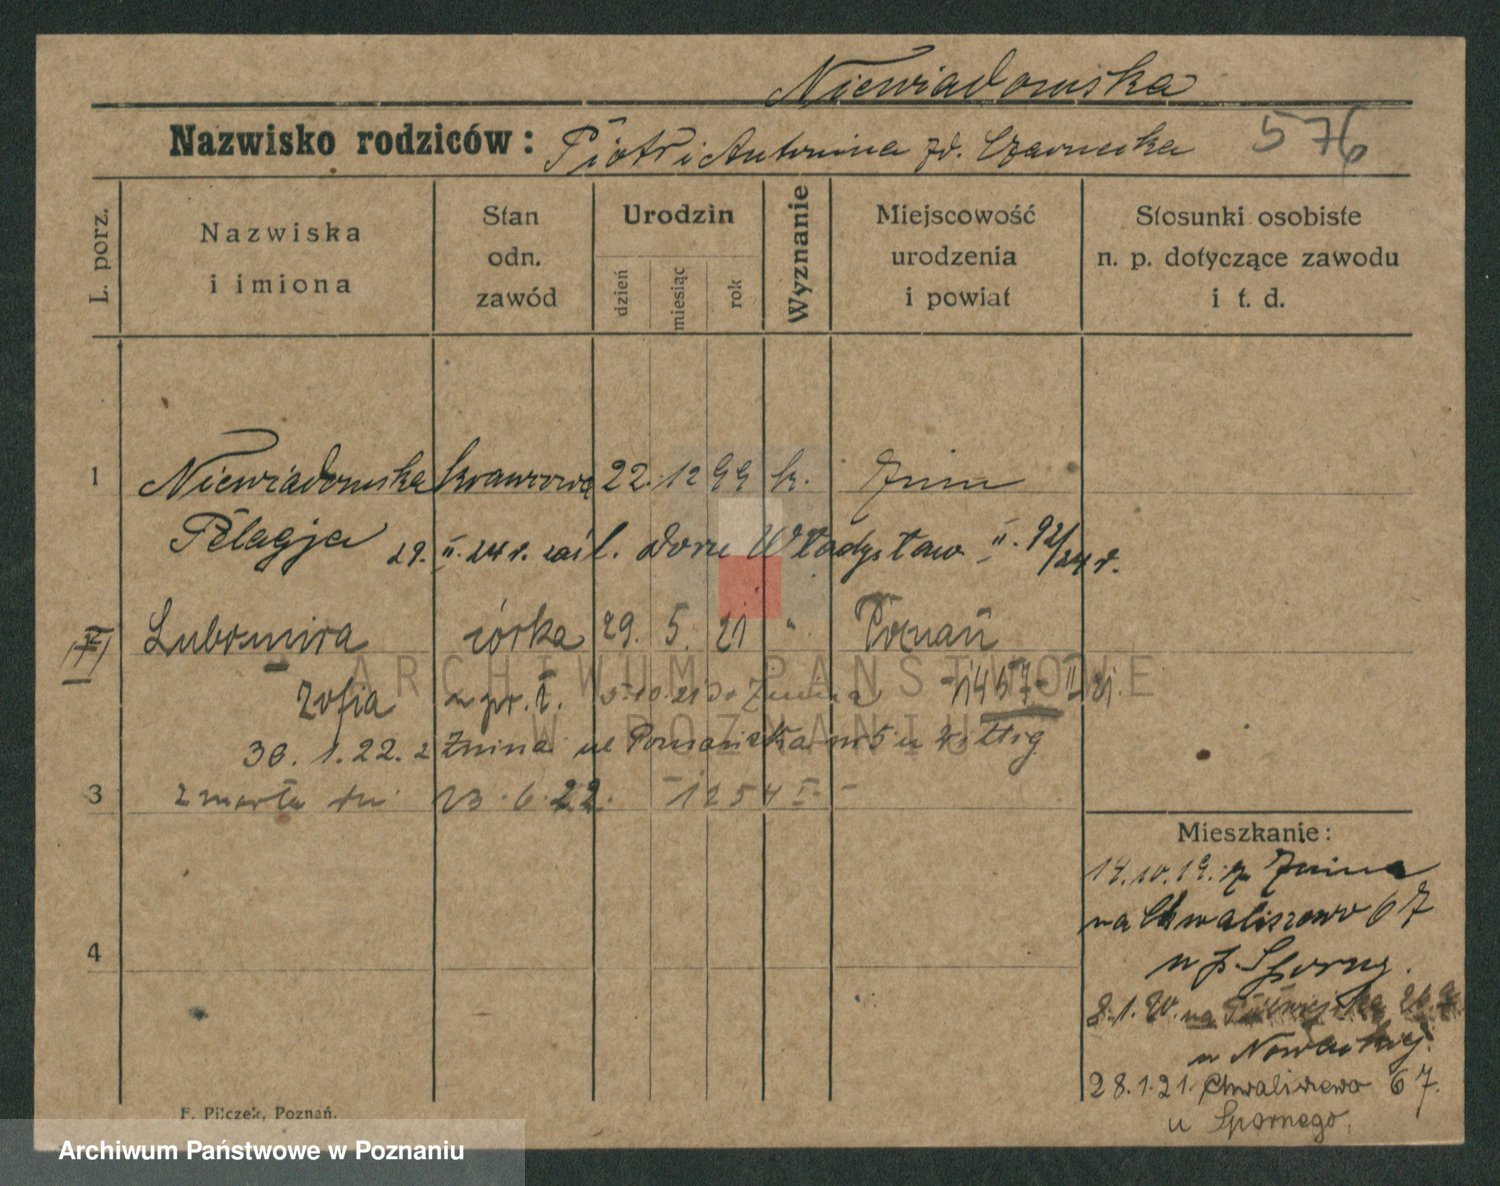 Niewiadomska
Nazwisko rodziców: Piotr i Antonina zd. Czarnecka 576
L. porz.
Nazwiska
i imiona
Stan
odn.
zawód
Urodzin
dzień
miesiąc
rok
Wyznanie
Miejscowość
urodzenia
i powiat
Stosunki osobiste
n. p. dotyczące zawodu
i t. d.
1 Niewiadomska krawcowa 22. 12 99 k. Żnin
Pelagja 29. II. 24 r. zaśl. Władysław II. 92/24 r.
Lubomira córka 29. 5. 21 " Poznań
Zofia 5.10.21 do Żnina 1457 II 21.
30. 1. 22. z Żnina ul Poznańska nr 5 u
3 zmarła dn. 23. 6. 22. - 1254 I. -
Mieszkanie:
14.10.19. z Żnina
na Chwaliszewo 67
u p. Sporny.
4
8.1.20. na
u Nowackiej.
28.1.21. Chwaliszewo 67.
u Spornego.
F. Pilczek, Poznań.
ARCHIWUM PAŃSTWOWE
W POZNANIU
Archiwum Państwowe w Poznaniu